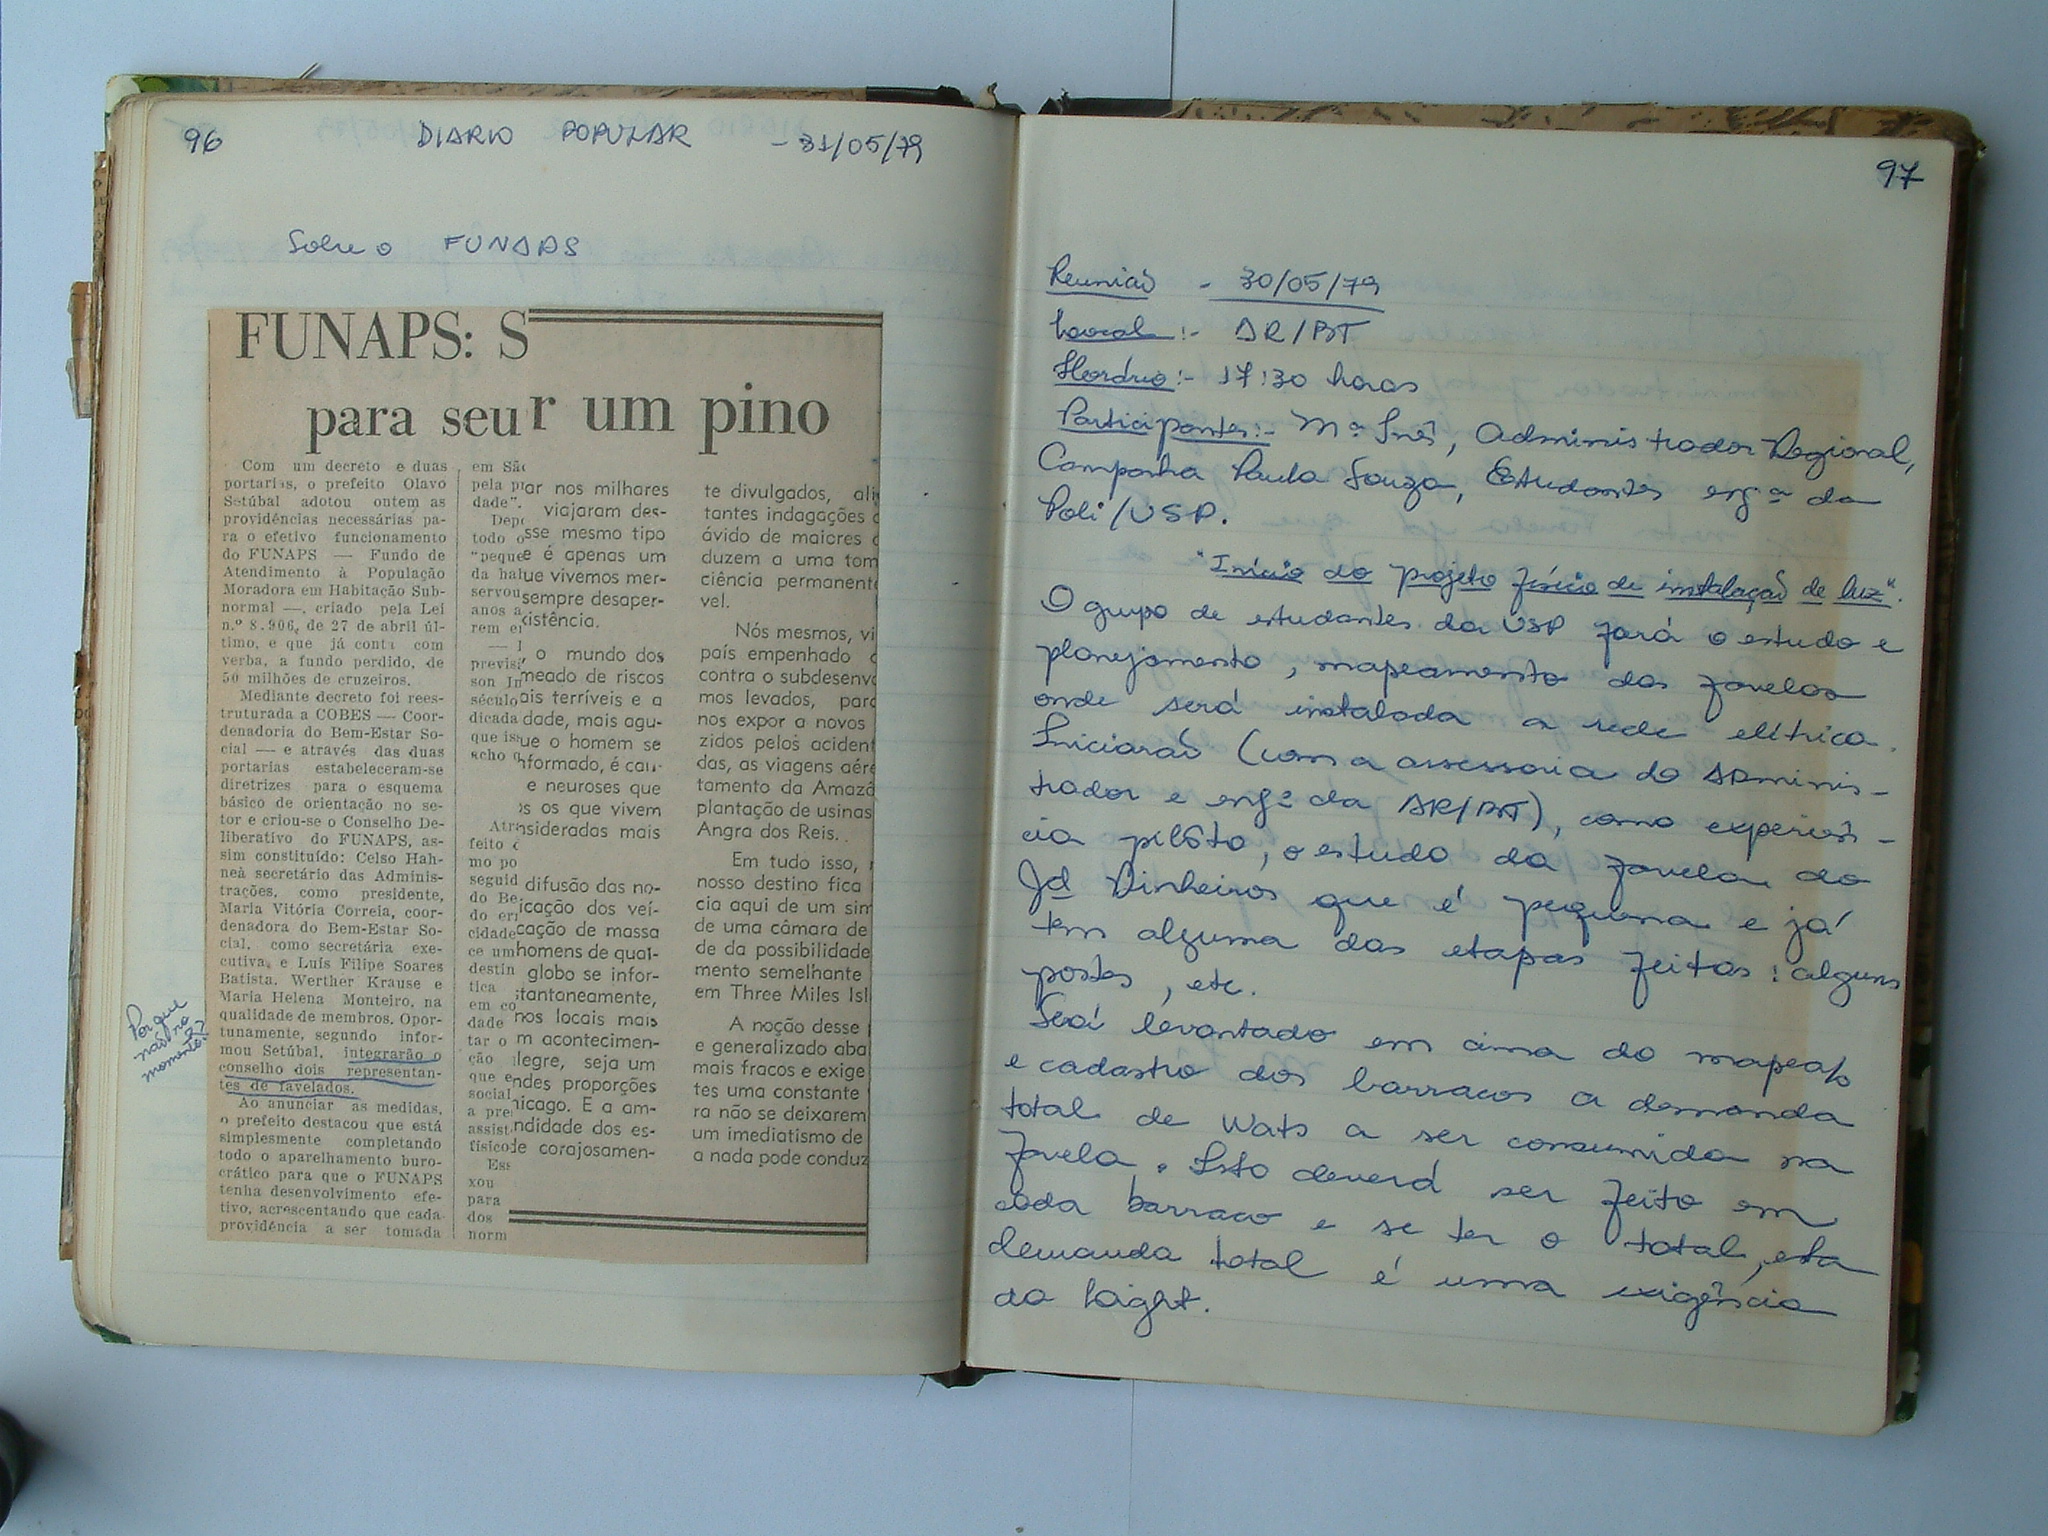 96
DIARIO POPULAR - 31/05/79
Sobre o FUNAPS
FUNAPS: S
para seu
Com um decreto e duas
portarias, o prefeito Olavo
Setúbal adotou ontem as
providências necessárias pa-
ra o efetivo funcionamento
do FUNAPS — Fundo de
Atendimento à População
Moradora em Habitação Sub-
normal —, criado pela Lei
n.º 8.906, de 27 de abril úl-
timo, e que já conta com
verba, a fundo perdido, de
50 milhões de cruzeiros.
Mediante decreto foi rees-
truturada a COBES — Coor-
denadoria do Bem-Estar So-
cial — e através das duas
portarias estabeleceram-se
diretrizes para o esquema
básico de orientação no se-
tor e criou-se o Conselho De-
liberativo do FUNAPS, as-
sim constituído: Celso Hah-
neà secretário das Adminis-
trações, como presidente,
Maria Vitória Correia, coor-
denadora do Bem-Estar So-
cial, como secretária exe-
cutiva, e Luís Filipe Soares
Batista, Werther Krause e
Maria Helena Monteiro, na
qualidade de membros. Opor-
tunamente, segundo infor-
mou Setúbal, integrarão o
conselho dois representan-
tes de favelados.
Ao anunciar as medidas,
o prefeito destacou que está
simplesmente completando
todo o aparelhamento buro-
crático para que o FUNAPS
tenha desenvolvimento efe-
tivo, acrescentando que cada
providência a ser tomada
Por que
não no
momento??
em São
pela pr
dade".
Depo
todo o
"peque
da hal
servou
anos a
rem e
— I
previs
son Jn
século
dicada
que is
acho q
Atra
feito
mo po
seguid
do Be
do er
cidade
ce um
destin
tica
em co
dade
tar o
ção
que e
social
a pre
assist
físico
Ess
xou
para
dos
norm
r um pino
ar nos milhares
viajaram des-
sse mesmo tipo
e é apenas um
ue vivemos mer-
sempre desaper-
xistência.
o mundo dos
meado de riscos
ais terríveis e a
dade, mais agu-
ue o homem se
nformado, é cau-
e neuroses que
os os que vivem
nsideradas mais
difusão das no-
icação dos veí-
cação de massa
homens de qual-
globo se infor-
tantaneamente,
nos locais mais
m acontecimen-
legre, seja um
ndes proporções
icago. E a am-
ndidade dos es-
e corajosamen-
te divulgados, ali
tantes indagações
ávido de maiores
duzem a uma tom
ciência permanent
vel.
Nós mesmos, vi
país empenhado
contra o subdesenv
mos levados, para
nos expor a novos
zidos pelos aciden
das, as viagens aér
tamento da Amazô
plantação de usinas
Angra dos Reis.
Em tudo isso,
nosso destino fica
cia aqui de um sim
de uma câmara de
de da possibilidade
mento semelhante
em Three Miles Isl
A noção desse
e generalizado aba
mais fracos e exige
tes uma constante
ra não se deixarem
um imediatismo de
a nada pode conduz
97
Reunião - 30/05/79
Local:- AR/BT
Horário:- 17:30 horas
Participantes:- Mª Inês, Administrador Regional,
Campanha Paula Souza, Estudantes engª da
Poli/USP.
"Início do projeto físico de instalação de luz".
O grupo de estudantes da USP fará o estudo e
planejamento, mapeamento das favelas
onde será instalada a rede elétrica.
Iniciarão (com a assessoria do Adminis-
trador e engº da AR/BT), como experiên-
cia pilôto, o estudo da favela do
Jd Pinheiros que é pequena e já
tem alguma das etapas feitas: alguns
postes, etc.
Será levantado em cima do mapeato
e cadastro dos barracos a demanda
total de Wats a ser consumida na
favela. Isto deverá ser feito em
cada barraco e se ter o total, esta
demanda total é uma exigência
da Light.